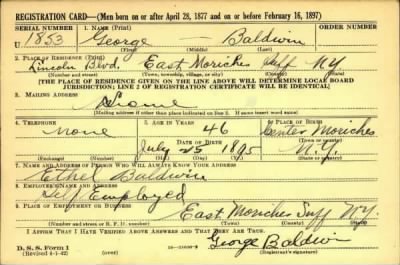 REGISTRATION CARD—(Men born on or after April 28, 1877 and on or before February 16, 1897)
SERIAL NUMBER 1. NAME (Print) ORDER NUMBER
U 1853 George Baldwin
(First) (Middle) (Last)
2. PLACE OF RESIDENCE (Print)
Lincoln Blvd East Moriches Suff NY
(Number and street) (Town, township, village, or city) (County) (State)
[THE PLACE OF RESIDENCE GIVEN ON THE LINE ABOVE WILL DETERMINE LOCAL BOARD
JURISDICTION; LINE 2 OF REGISTRATION CERTIFICATE WILL BE IDENTICAL]
3. MAILING ADDRESS
Home
[Mailing address if other than place indicated on line 2. If same insert word same]
4. TELEPHONE 5. AGE IN YEARS 6. PLACE OF BIRTH
none 46 Center Moriches
DATE OF BIRTH (Town or county)
July 25 1895 N.Y.
(Exchange) (Number) (Mo.) (Day) (Yr.) (State or country)
7. NAME AND ADDRESS OF PERSON WHO WILL ALWAYS KNOW YOUR ADDRESS
Ethel Baldwin
8. EMPLOYER'S NAME AND ADDRESS
Self Employed
9. PLACE OF EMPLOYMENT OR BUSINESS
East Moriches Suff N.Y.
(Number and street or R. F. D. number) (Town) (County) (State)
I AFFIRM THAT I HAVE VERIFIED ABOVE ANSWERS AND THAT THEY ARE TRUE.
George Baldwin
D. S. S. Form 1
(Revised 4-1-42) (over) (Registrant's signature)